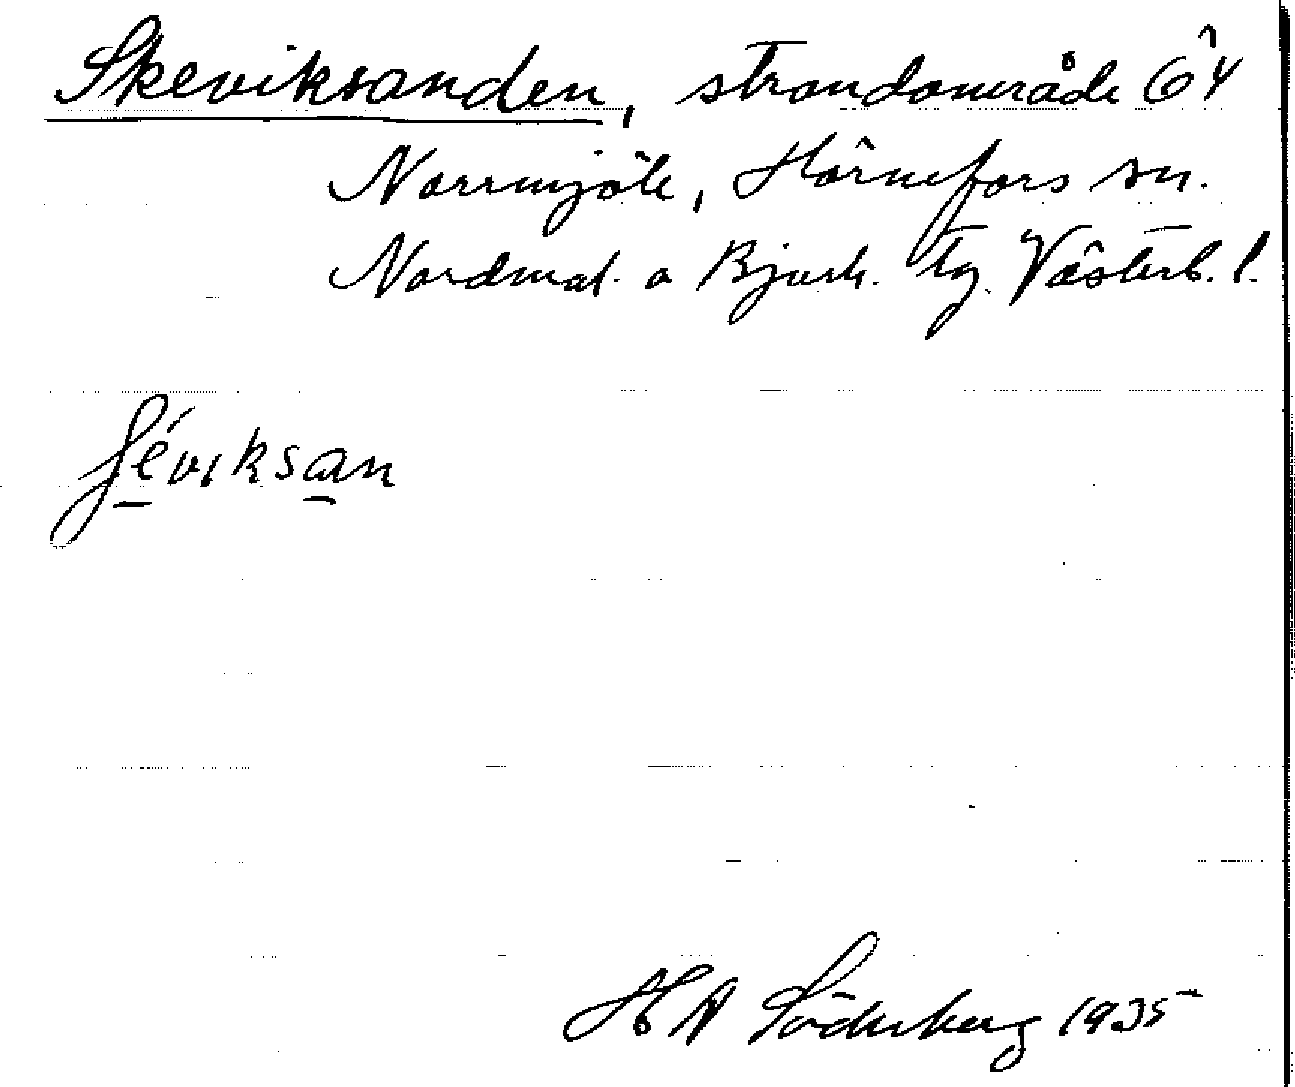 Skeviksanden, strandområde 64
Norrmjöle, Hörnefors sn.
Nordmal. o Bjurh. tg. Västerb. l.
ʃéviksan
H A Söderberg 1935